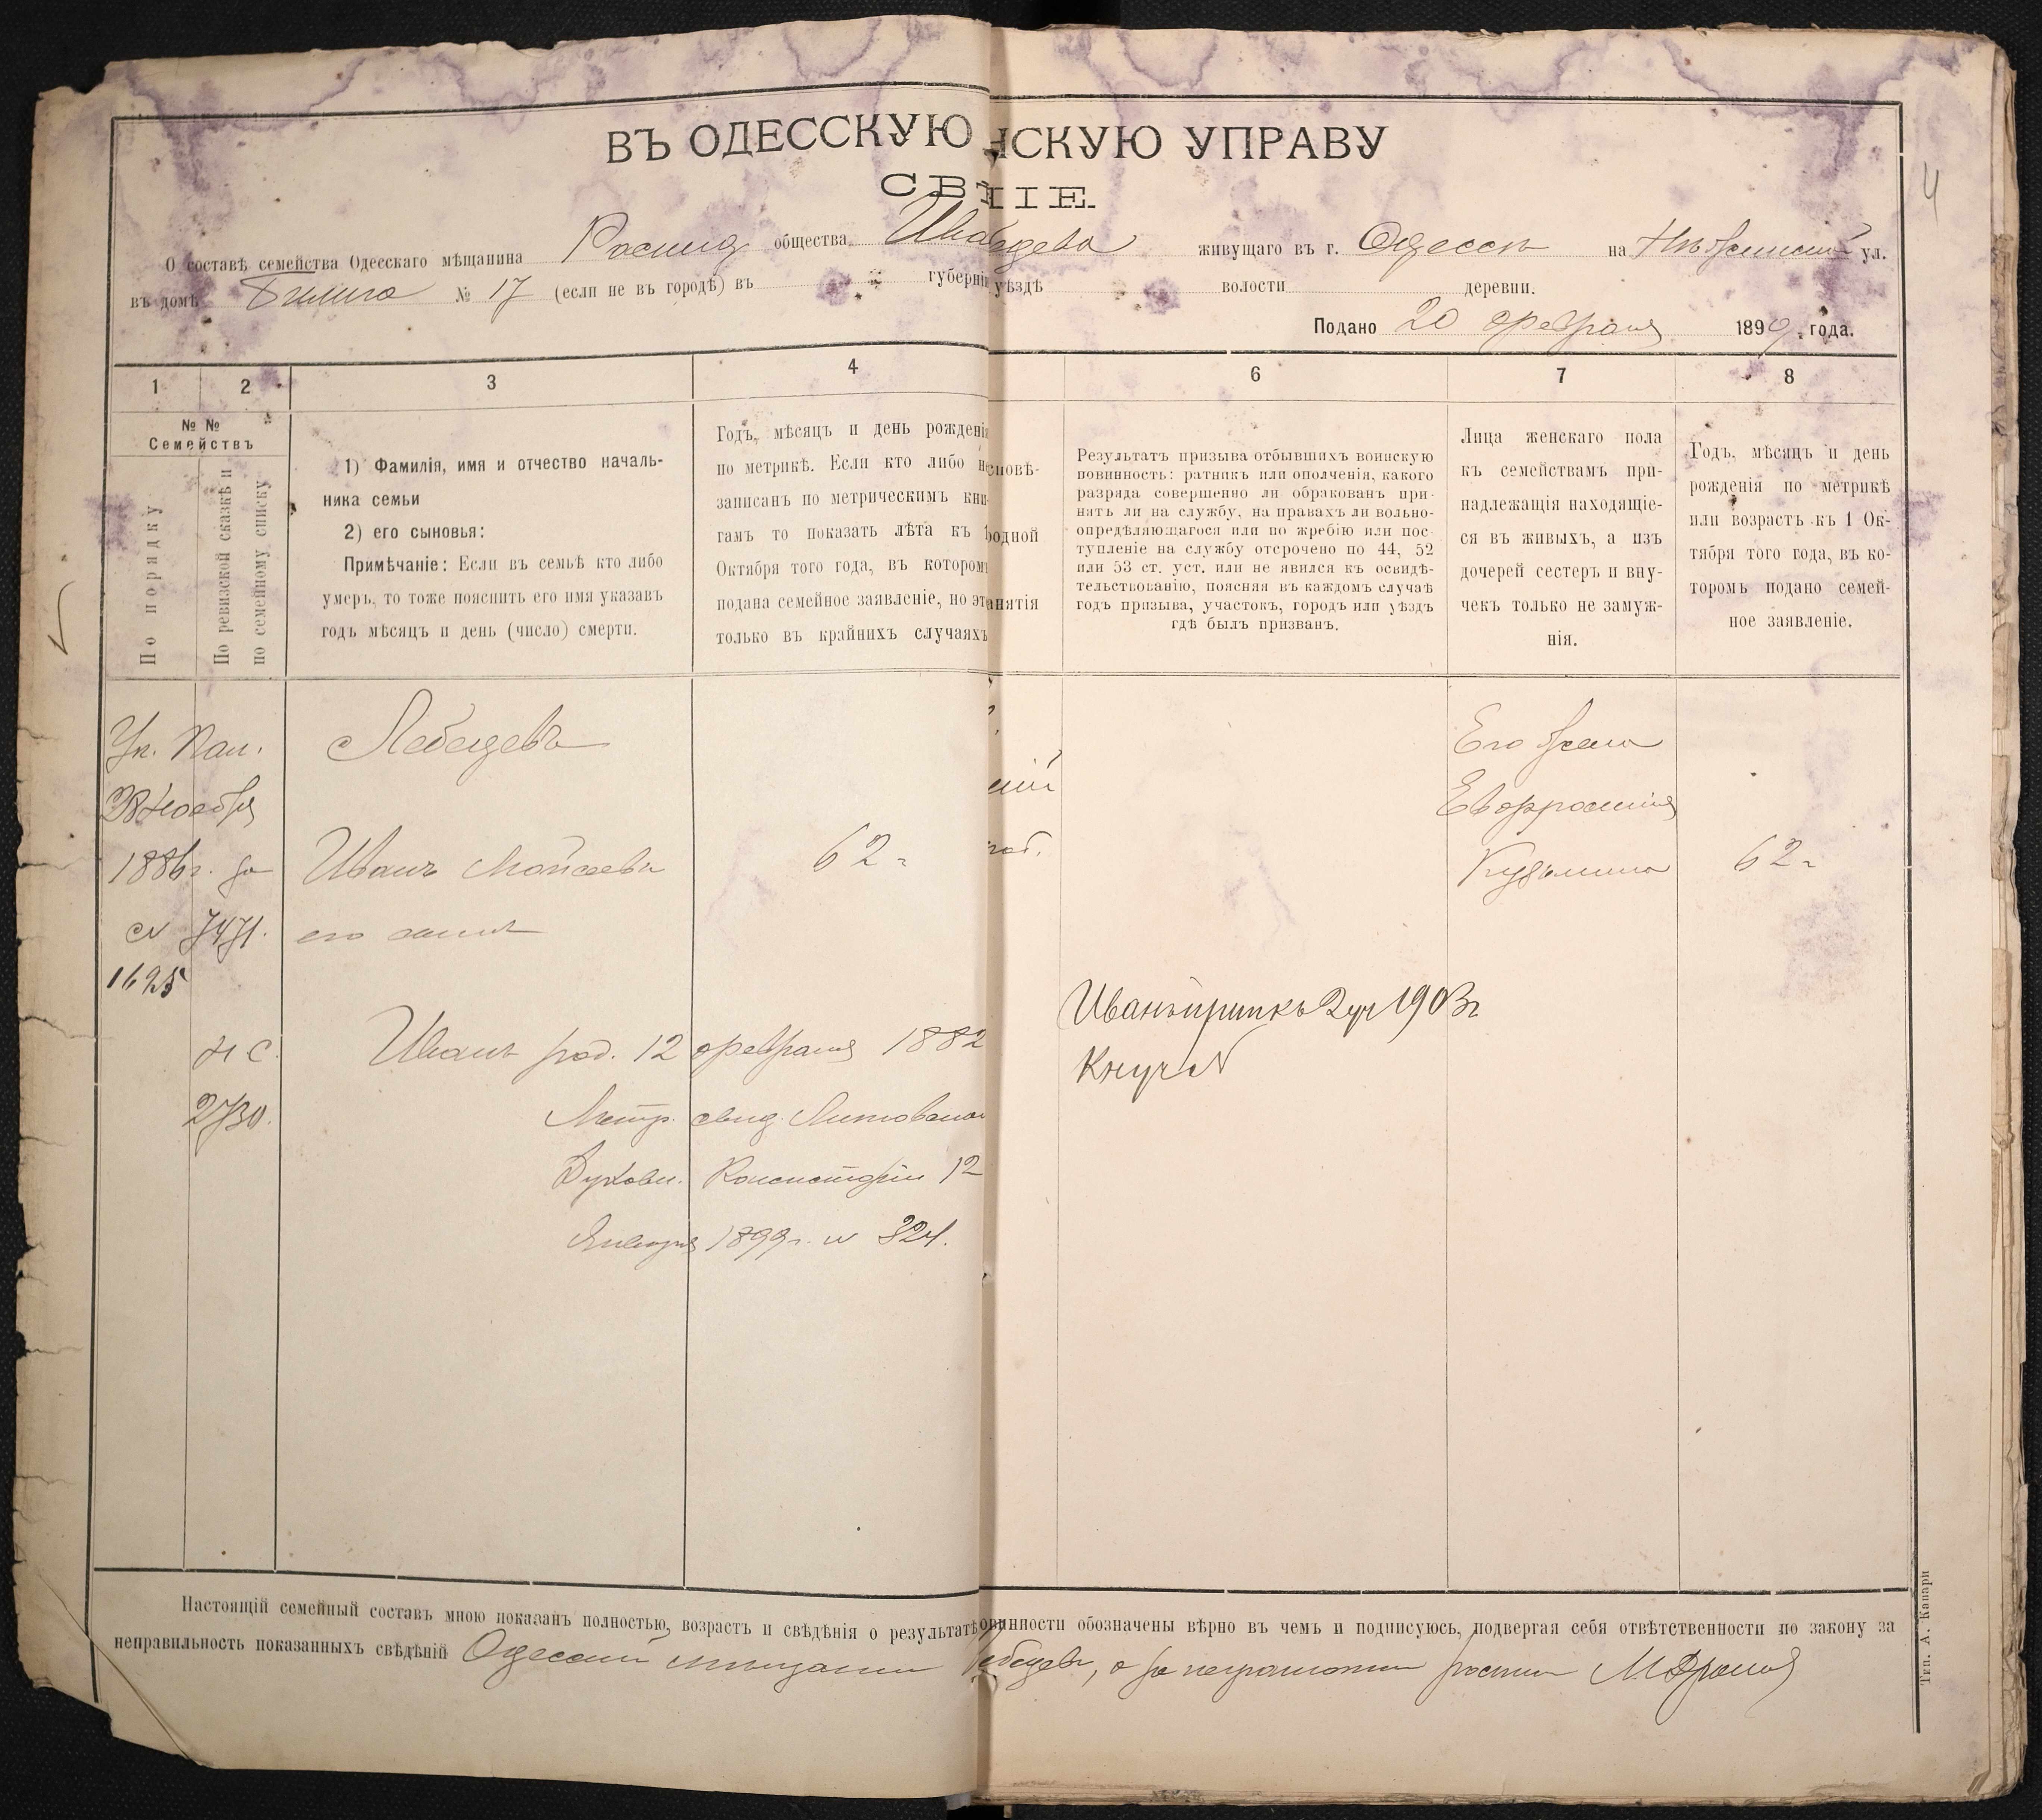 4
ВЪ ОДЕССКУЮ НСКУЮ УПРАВУ
СВ НІЕ.
О составѣ семейства Одесскаго мѣщанина общества Ива бедева живущаго въ г. Одессѣ на Нѣжинской ул.
въ домѣ № 17 (если не въ городѣ) въ губерні уѣздѣ волости деревни.
Подано 20 февраля 1899 года.
1 2 3 4 6 7 8
№ №
Семействъ
По порядку
По ревизской сказкѣ и
по семейному списку
1) Фамилія, имя и отчество началь-
ника семьи
2) его сыновья:
Примѣчаніе: Если въ семьѣ кто либо
умеръ, то тоже пояснить его имя указавъ
годъ мѣсяцъ и день (число) смерти.
Годъ, мѣсяцъ и день рожденія
по метрикѣ. Если кто либо н
записанъ по метрическимъ кни-
гамъ то показать лѣта къ 1
Октября того года, въ которомъ
подана семейное заявленіе, но эт
только въ крайнихъ случаяхъ
сповѣ-
родной
анятія
Результатъ призыва отбывшихъ воинскую
повинность: ратникъ или ополченія, какого
разряда совершенно ли обракованъ при-
нятъ ли на службу, на правахъ ли вольно-
опредѣляющагося или по жребію или пос-
тупленіе на службу отсрочено по 44, 52
или 53 ст. уст. или не явился къ освидѣ-
тельствованію, поясняя въ каждомъ случаѣ
годъ призыва, участокъ, городъ или уѣздъ
гдѣ былъ призванъ.
Лица женскаго пола
къ семействамъ при-
надлежащія находящіе-
ся въ живыхъ, а изъ
дочерей сестеръ и вну-
чекъ только не замуж-
нія.
Годъ, мѣсяцъ и день
рожденія по метрикѣ
или возрастъ къ 1 Ок-
тября того года, въ ко-
торомъ подано семей-
ное заявленіе.
Ук. Пал.
28 Ноября
1886 г. за
№ 7471.
1695
Н С.
2730.
Лебедевъ
Иванъ Мойсеевъ
62 г
его сынъ
Иванъ род. 12 февраля 1882
Метр. свид. Литовской
Духовн. Консисторіи 12
Января 1899 г. № 324.
скій
Иванъ припкъ 2 уч 1903 г
К уч №
Его жена
Евфросинія
Кузьмина
62 г
Настоящій семейный составъ мною показанъ полностью, возрастъ и свѣдѣнія о результатѣ овинности обозначены вѣрно въ чемъ и подписуюсь, подвергая себя отвѣтственности по закону за
неправильность показанныхъ свѣдѣній Одесскій мѣщанинъ Лебедевъ, а за неграмотн роспис
Тип. А. Капари